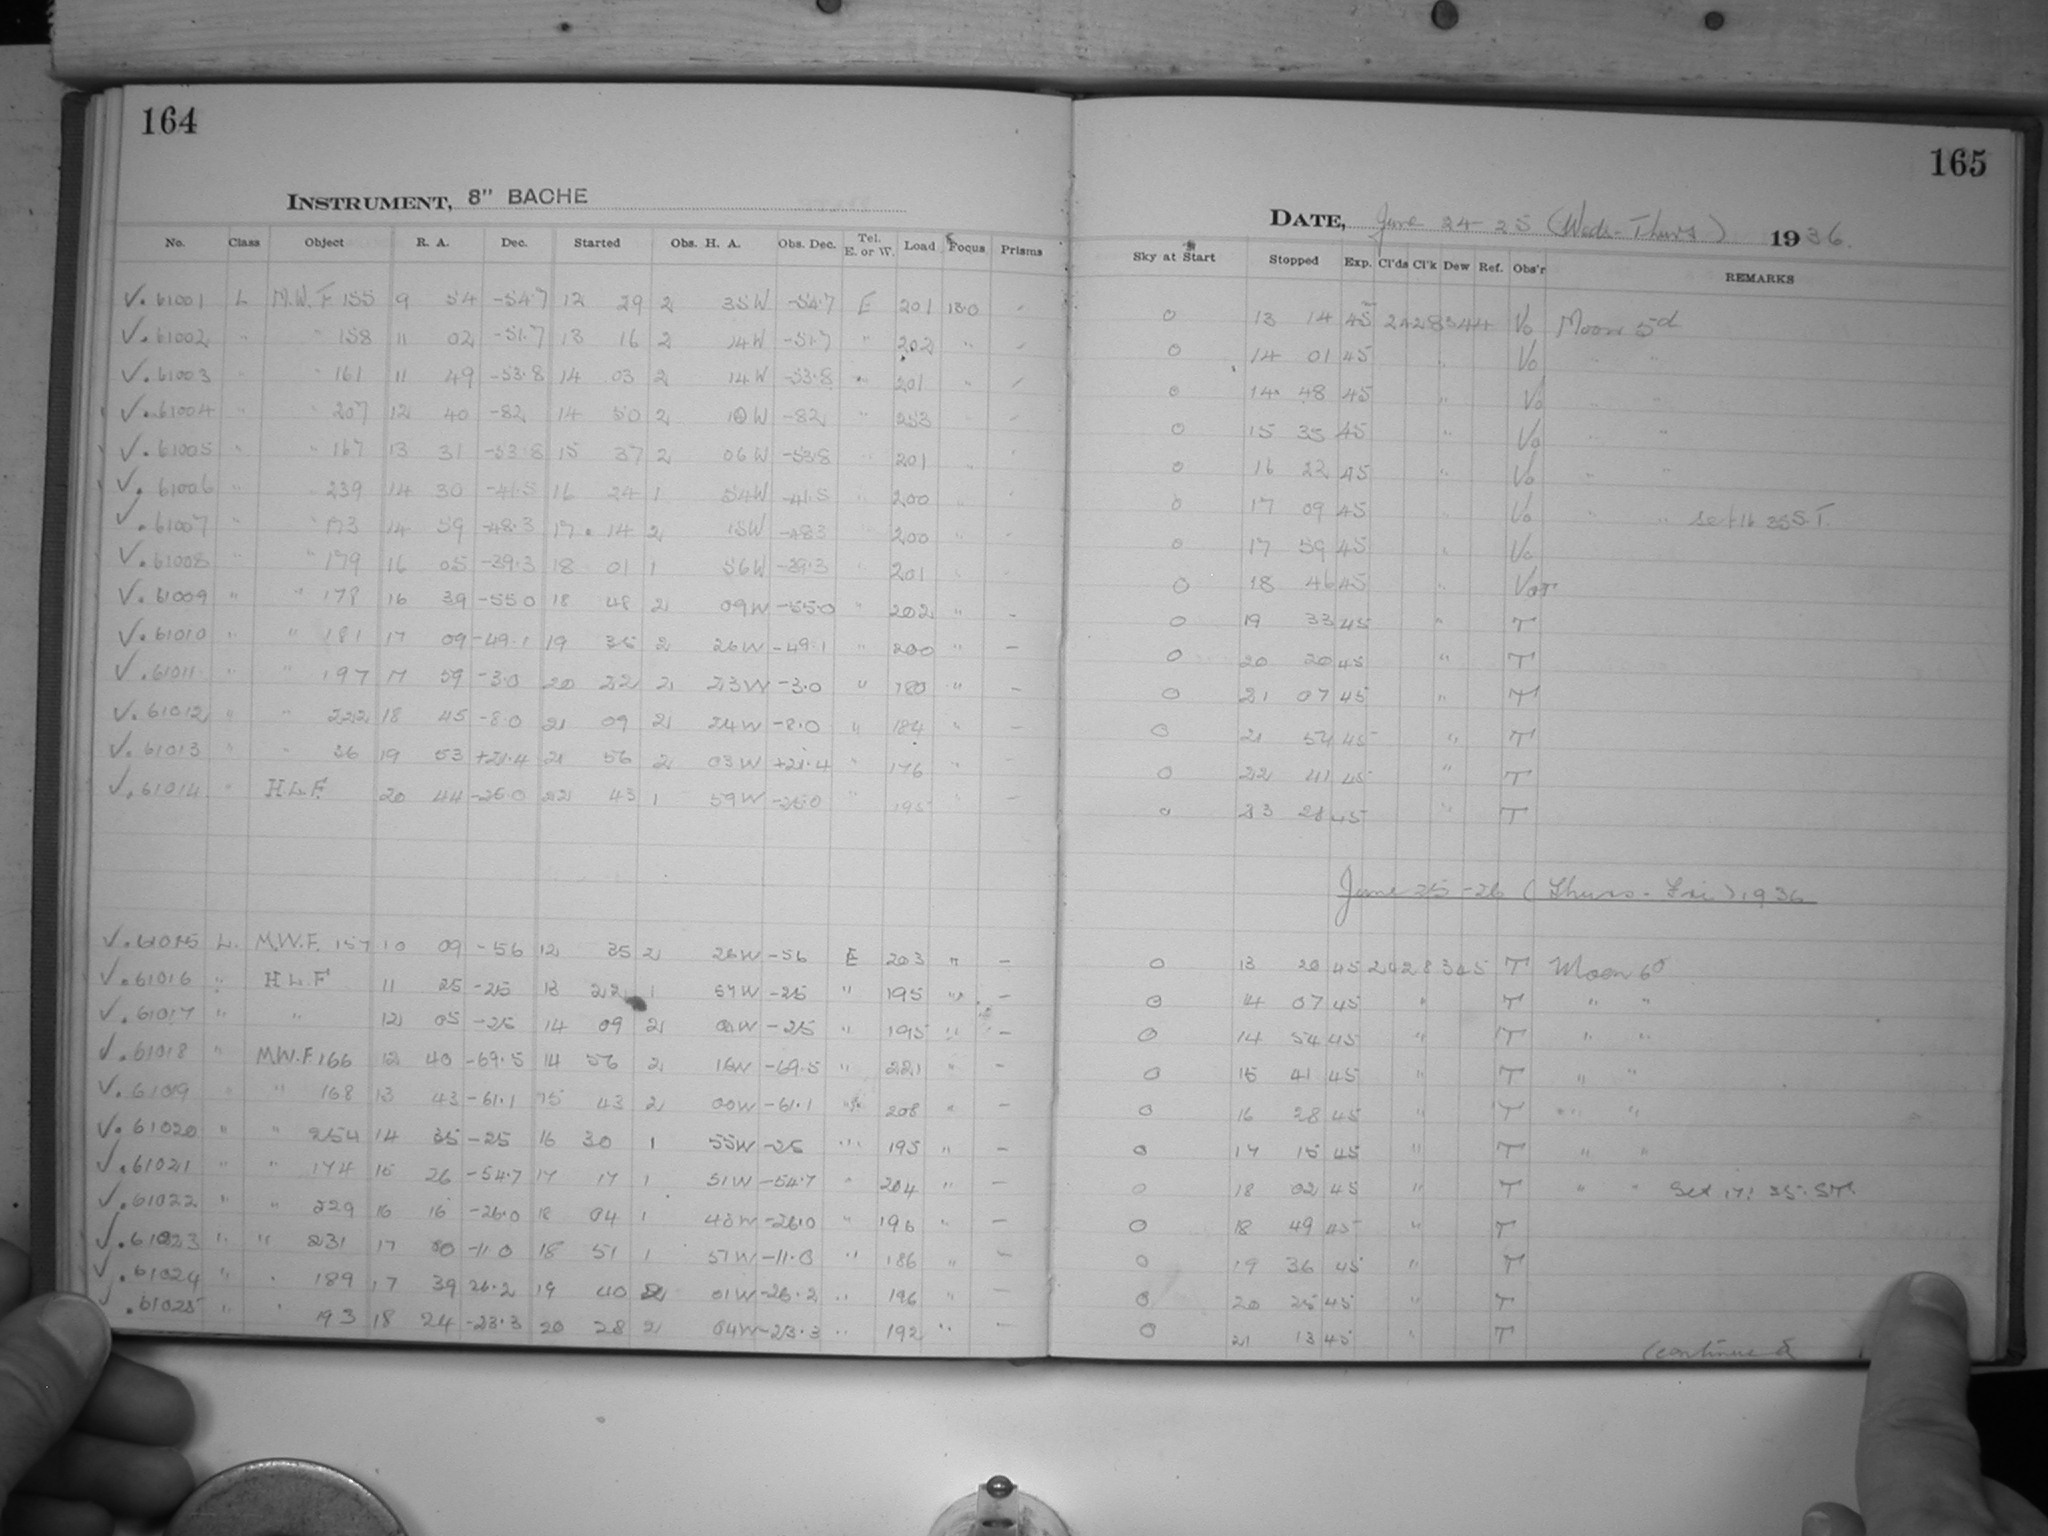 164
INSTRUMENT, 8" BACHE
No. Class Object R. A. Dec. Started Obs. H. A. Obs. Dec. Tel. E. or W. Load Focus Prisms
√. 61001 L M.W.F 155 9 54 -54.7 12 29 2 35W -54.7 E 201 13.0
√. 61002 " " 158 11 02 -51.7 13 16 2 14W -51.7 " 202 "
√. 61003 " " 161 11 49 -53.8 14 03 2 14W -53.8 " 201 "
√. 61004 " " 207 12 40 -82 14 50 2 10W -82 " 253 "
√. 61005 " " 167 13 31 -53.8 15 37 2 06W -53.8 " 201 "
√. 61006 " " 239 14 30 -41.5 16 24 1 54W -41.5 " 200 "
√. 61007 " " 173 14 59 -48.3 17 14 2 15W -48.3 " 200 "
√. 61008 " " 179 16 05 -39.3 18 01 1 56W -39.3 " 201 "
√. 61009 " " 178 16 39 -55.0 18 48 2 09W -55.0 " 202 " -
√. 61010 " " 181 17 09 -49.1 19 35 2 26W -49.1 " 200 " -
√. 61011 " " 197 17 59 -3.0 20 22 2 23W -3.0 " 180 " -
√. 61012 " " 222 18 45 -8.0 21 09 2 24W -8.0 " 184 " -
√. 61013 " " 36 19 53 +21.4 21 56 2 03W +21.4 " 176 " -
√. 61014 " H.L.F. 20 44 -25.0 22 43 1 59W -25.0 " 195 " -
√. 61015 L. M.W.F. 157 10 09 -56 12 35 2 26W -56 E 203 " -
√. 61016 " H.L.F 11 25 -25 13 22 1 57W -25 " 195 " -
√. 61017 " " 12 05 -25 14 09 2 -25 " 195 " -
√. 61018 " M.W.F. 166 12 40 -69.5 14 56 2 16W -69.5 " 221 " -
√. 61019 " " 168 13 43 -61.1 15 43 2 00W -61.1 " 208 " -
√. 61020 " " 254 14 35 -25 16 30 1 55W -25 " 195 " -
√. 61021 " " 174 15 26 -54.7 17 17 1 51W -54.7 " 204 " -
√. 61022 " " 229 16 16 -26.0 18 04 1 48W -26.0 " 196 " -
√. 61023 " " 231 17 00 -11.0 18 51 1 51W -11.0 " 186 " -
√. 61024 " " 189 17 39 26.2 19 40 2 01W -26.2 " 196 " -
√. 61025 " " 193 18 24 -23.3 20 28 2 04W -23.3 " 192 " -
165
DATE, June 24-25 (Weds-Thurs) 1936.
Sky at Start Stopped Exp. Cl'ds Cl'k Dew Ref. Obs'r REMARKS
0 13 14 45 242834 4 Vo Moon 5d
0 14 01 45 " Vo " "
0 14 48 45 " Vo " "
0 15 35 45 " Vo " "
0 16 22 45 " Vo " "
0 17 09 45 " Vo " " set 16 35 S.T.
0 17 59 45 " Vo
0 18 46 45 " VoT
0 19 33 45 " T
0 20 20 45 " T
0 21 07 45 " T
0 21 54 45 " T
0 22 41 45 " T
0 23 28 45 " T
June 25-26 (Thurs-Fri) 1936
0 13 20 45 2428345 T Moon 6d
0 14 07 45 " T " "
0 14 54 45 " T " "
0 15 41 45 " T " "
0 16 28 45 " T " "
0 17 15 45 " T " "
0 18 02 45 " T " " Set 17: 35. ST.
0 18 49 45 " T
0 19 36 45 " T
0 20 25 45 " T
0 21 13 45 " T
(continued